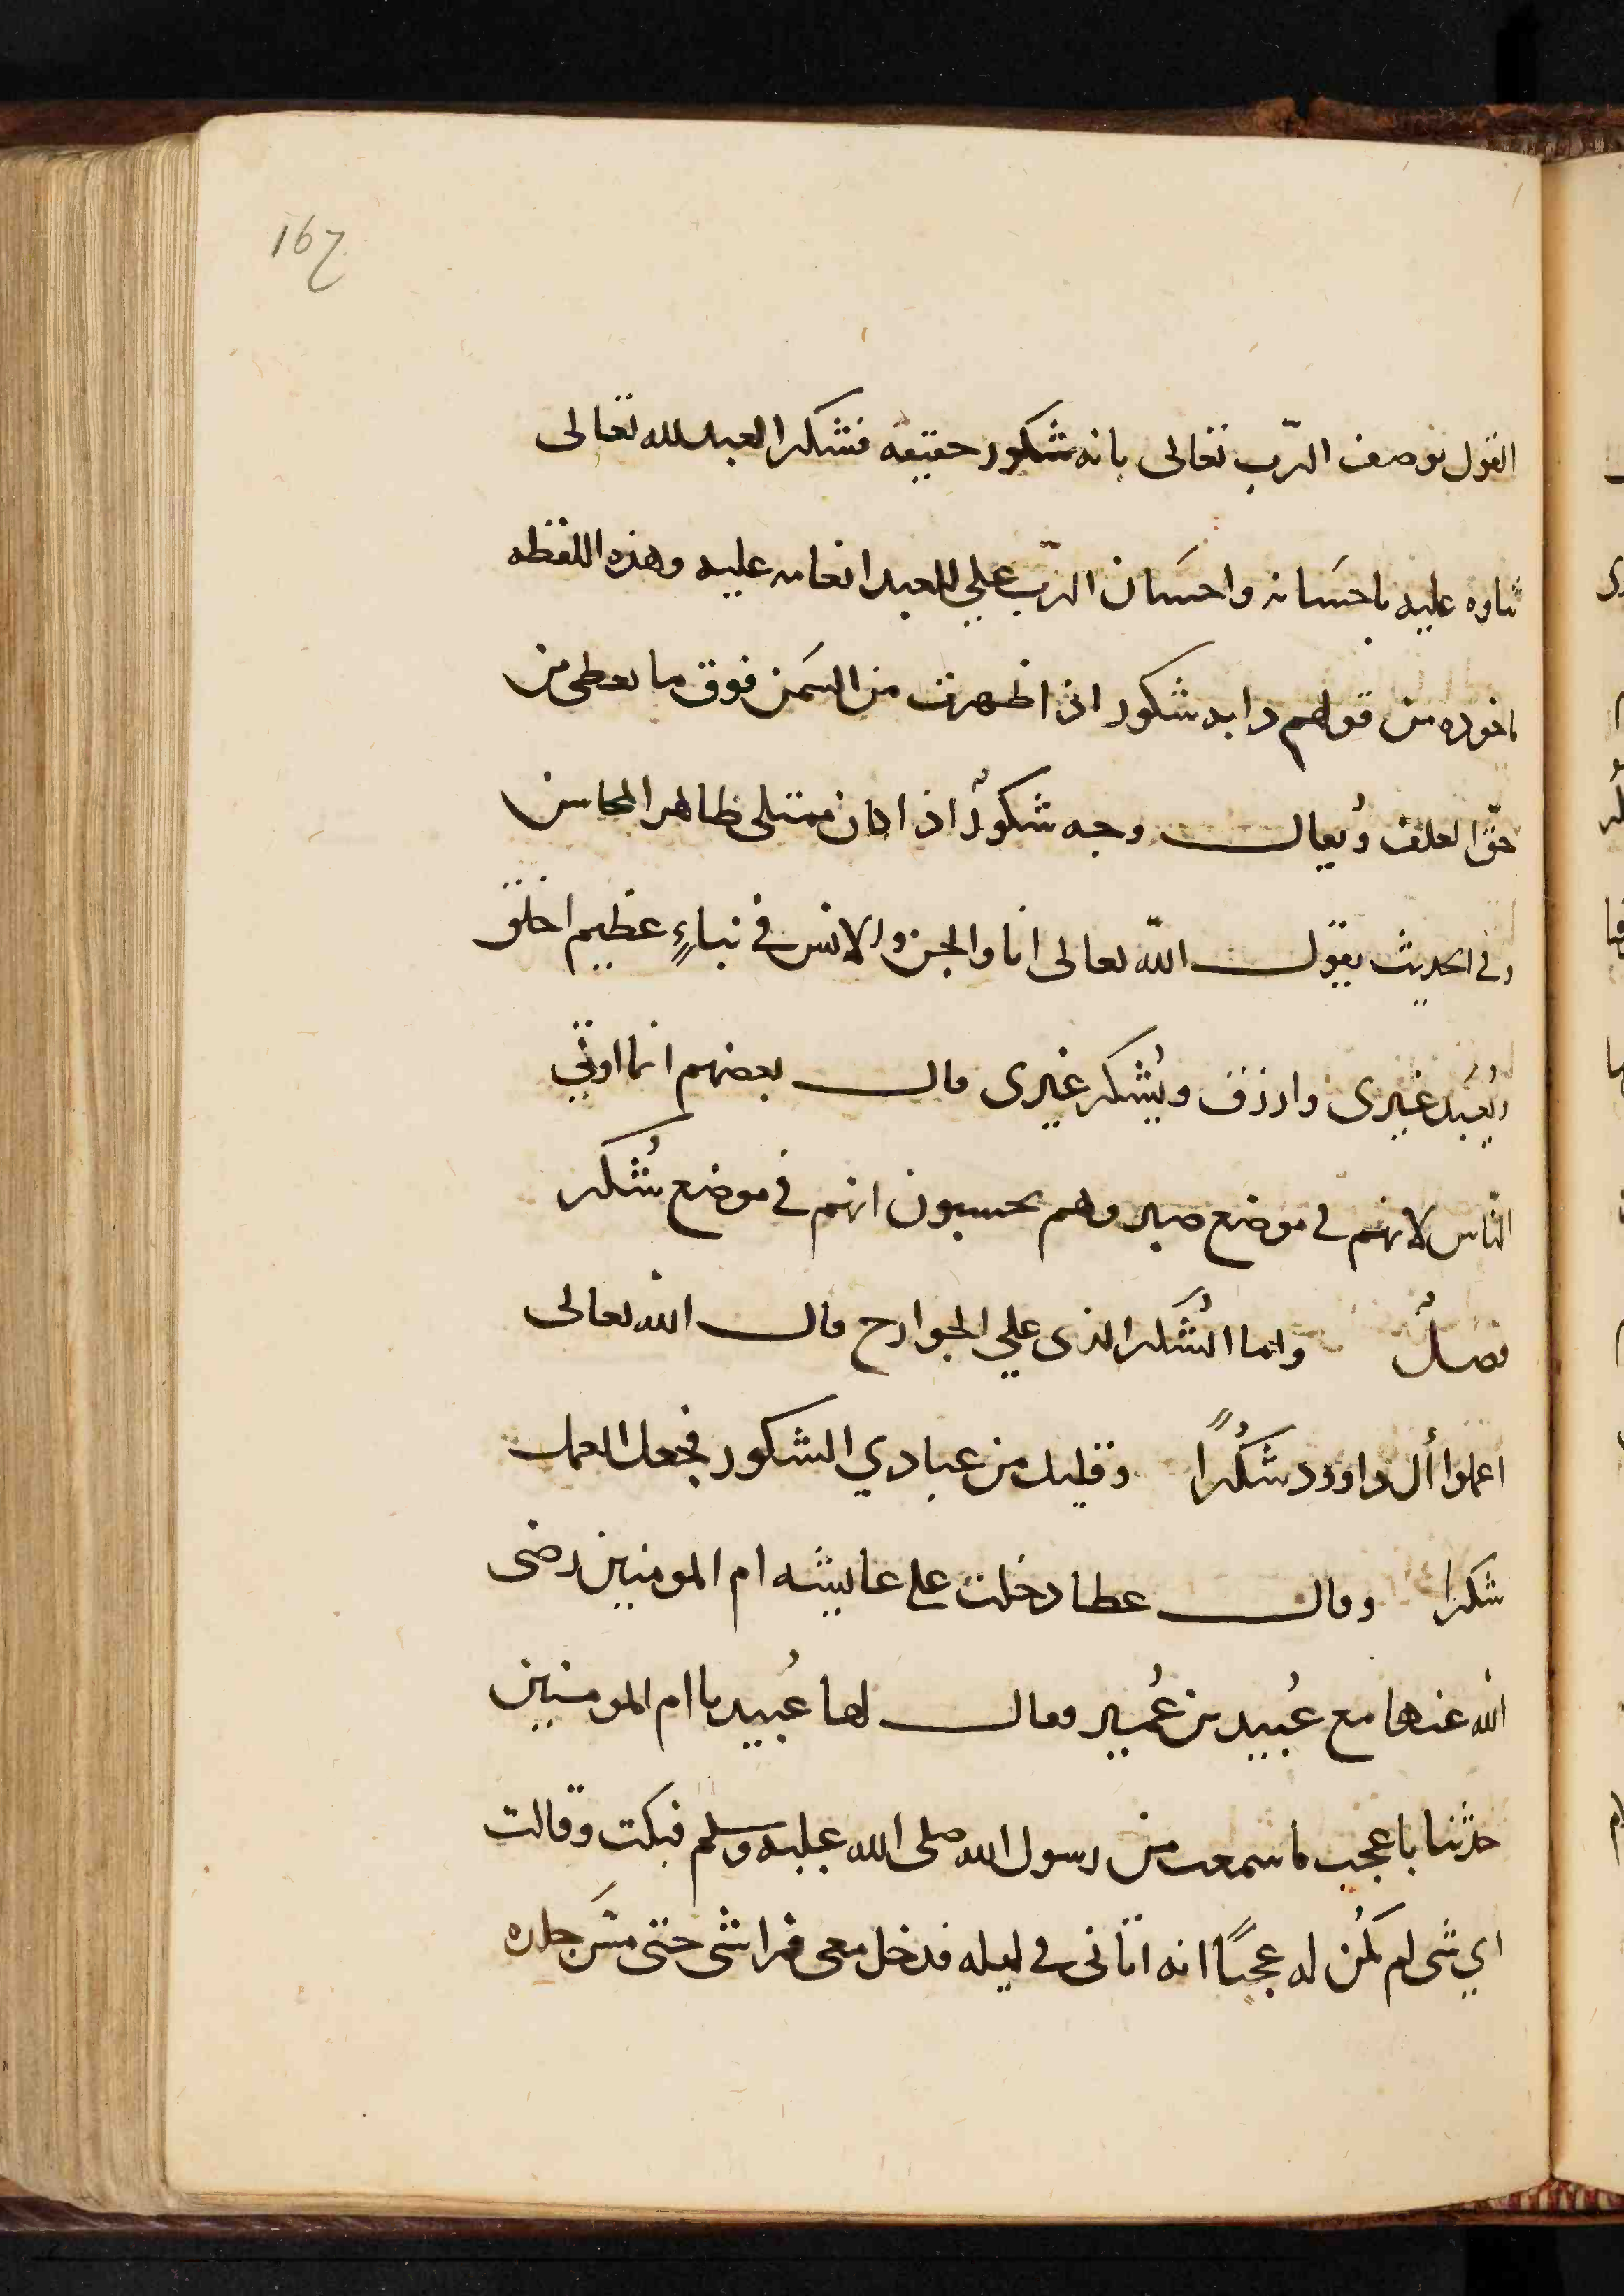 167
القول نوصف الرّب تعالى بانه شكور حقيقه فشكر العبد لله تعالى
ثناوه عليه باحسَانه واحسَان الرّب علي العبد انعامه عليه وهذه اللفظه
ماخوده من قولهم دابه شكور اذا ظهرت من السَمَن فوق ما يعطى من
حقّ العلف وُيقال وجه شكورٌ اذا كان ممتلى ظاهر المحاسن
وفي الحديث يقول اللّه تعالى انا والجن والانس في نباءٍ عظيم اخلق
ويُعبَد غيرى وارزق ويُشكر غيرى قال بعضهم انما اوتي
النّاس لانهم في موضع صبر وهم يحسبون انهم في موضع شُكر
فصلٌ وانما الشُكر الذى علي الجوارح قال الله تعالى
اعملوا أل داوود شكُرًا وقليل من عبادي الشكور فجعل العمل
شكرا وقال عطا دخلت على عاييشه ام المومنين رضى
الله عنها مع عُبيد بن عُمير فقال لها عُبيد يا ام المومنين
حدّثنا باعجب ما سمعت من رسول الله صلى الله عليه وسلم فبكت وقالت
اي شى لم يكُن له عجبًا انه اتانى في ليله فدخل معى فراشى حتى مسَّ جلده